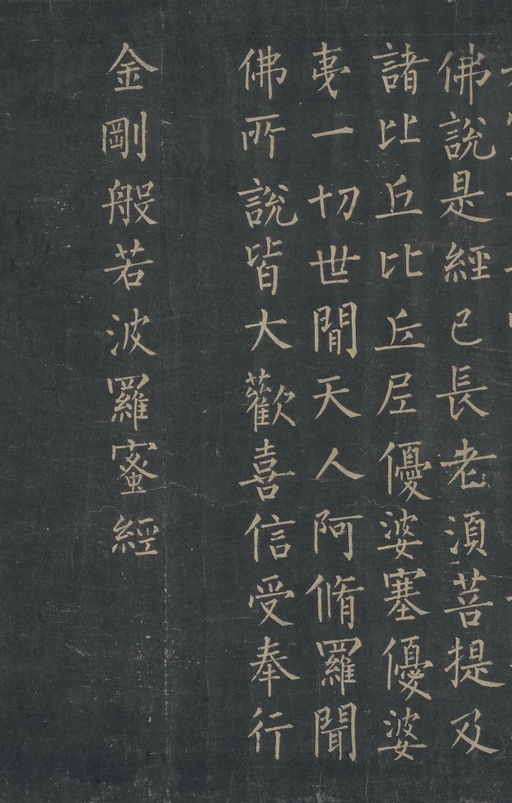 佛說是經已長老湏菩提及
諸比丘比丘尼優婆塞優婆
夷一切世閒天人阿脩羅聞
佛所說皆大歡喜信受奉行
金剛般若波羅蜜經